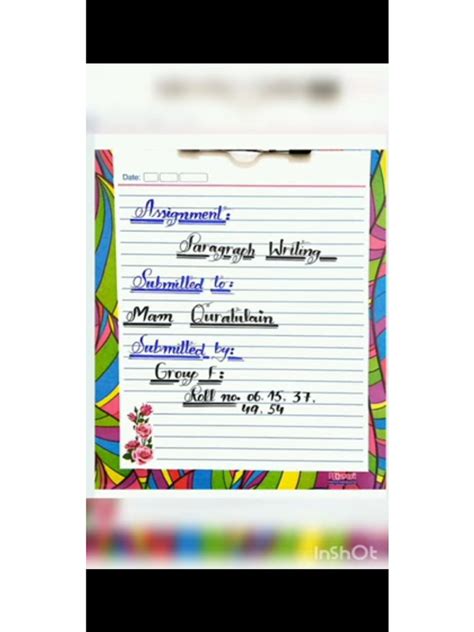 Date:
Assignment:
Paragraph Writing
Submitted to:
Mam Quratulain
Submitted by:
Group F:
Roll no. 06. 15. 37.
49. 54
InShOt